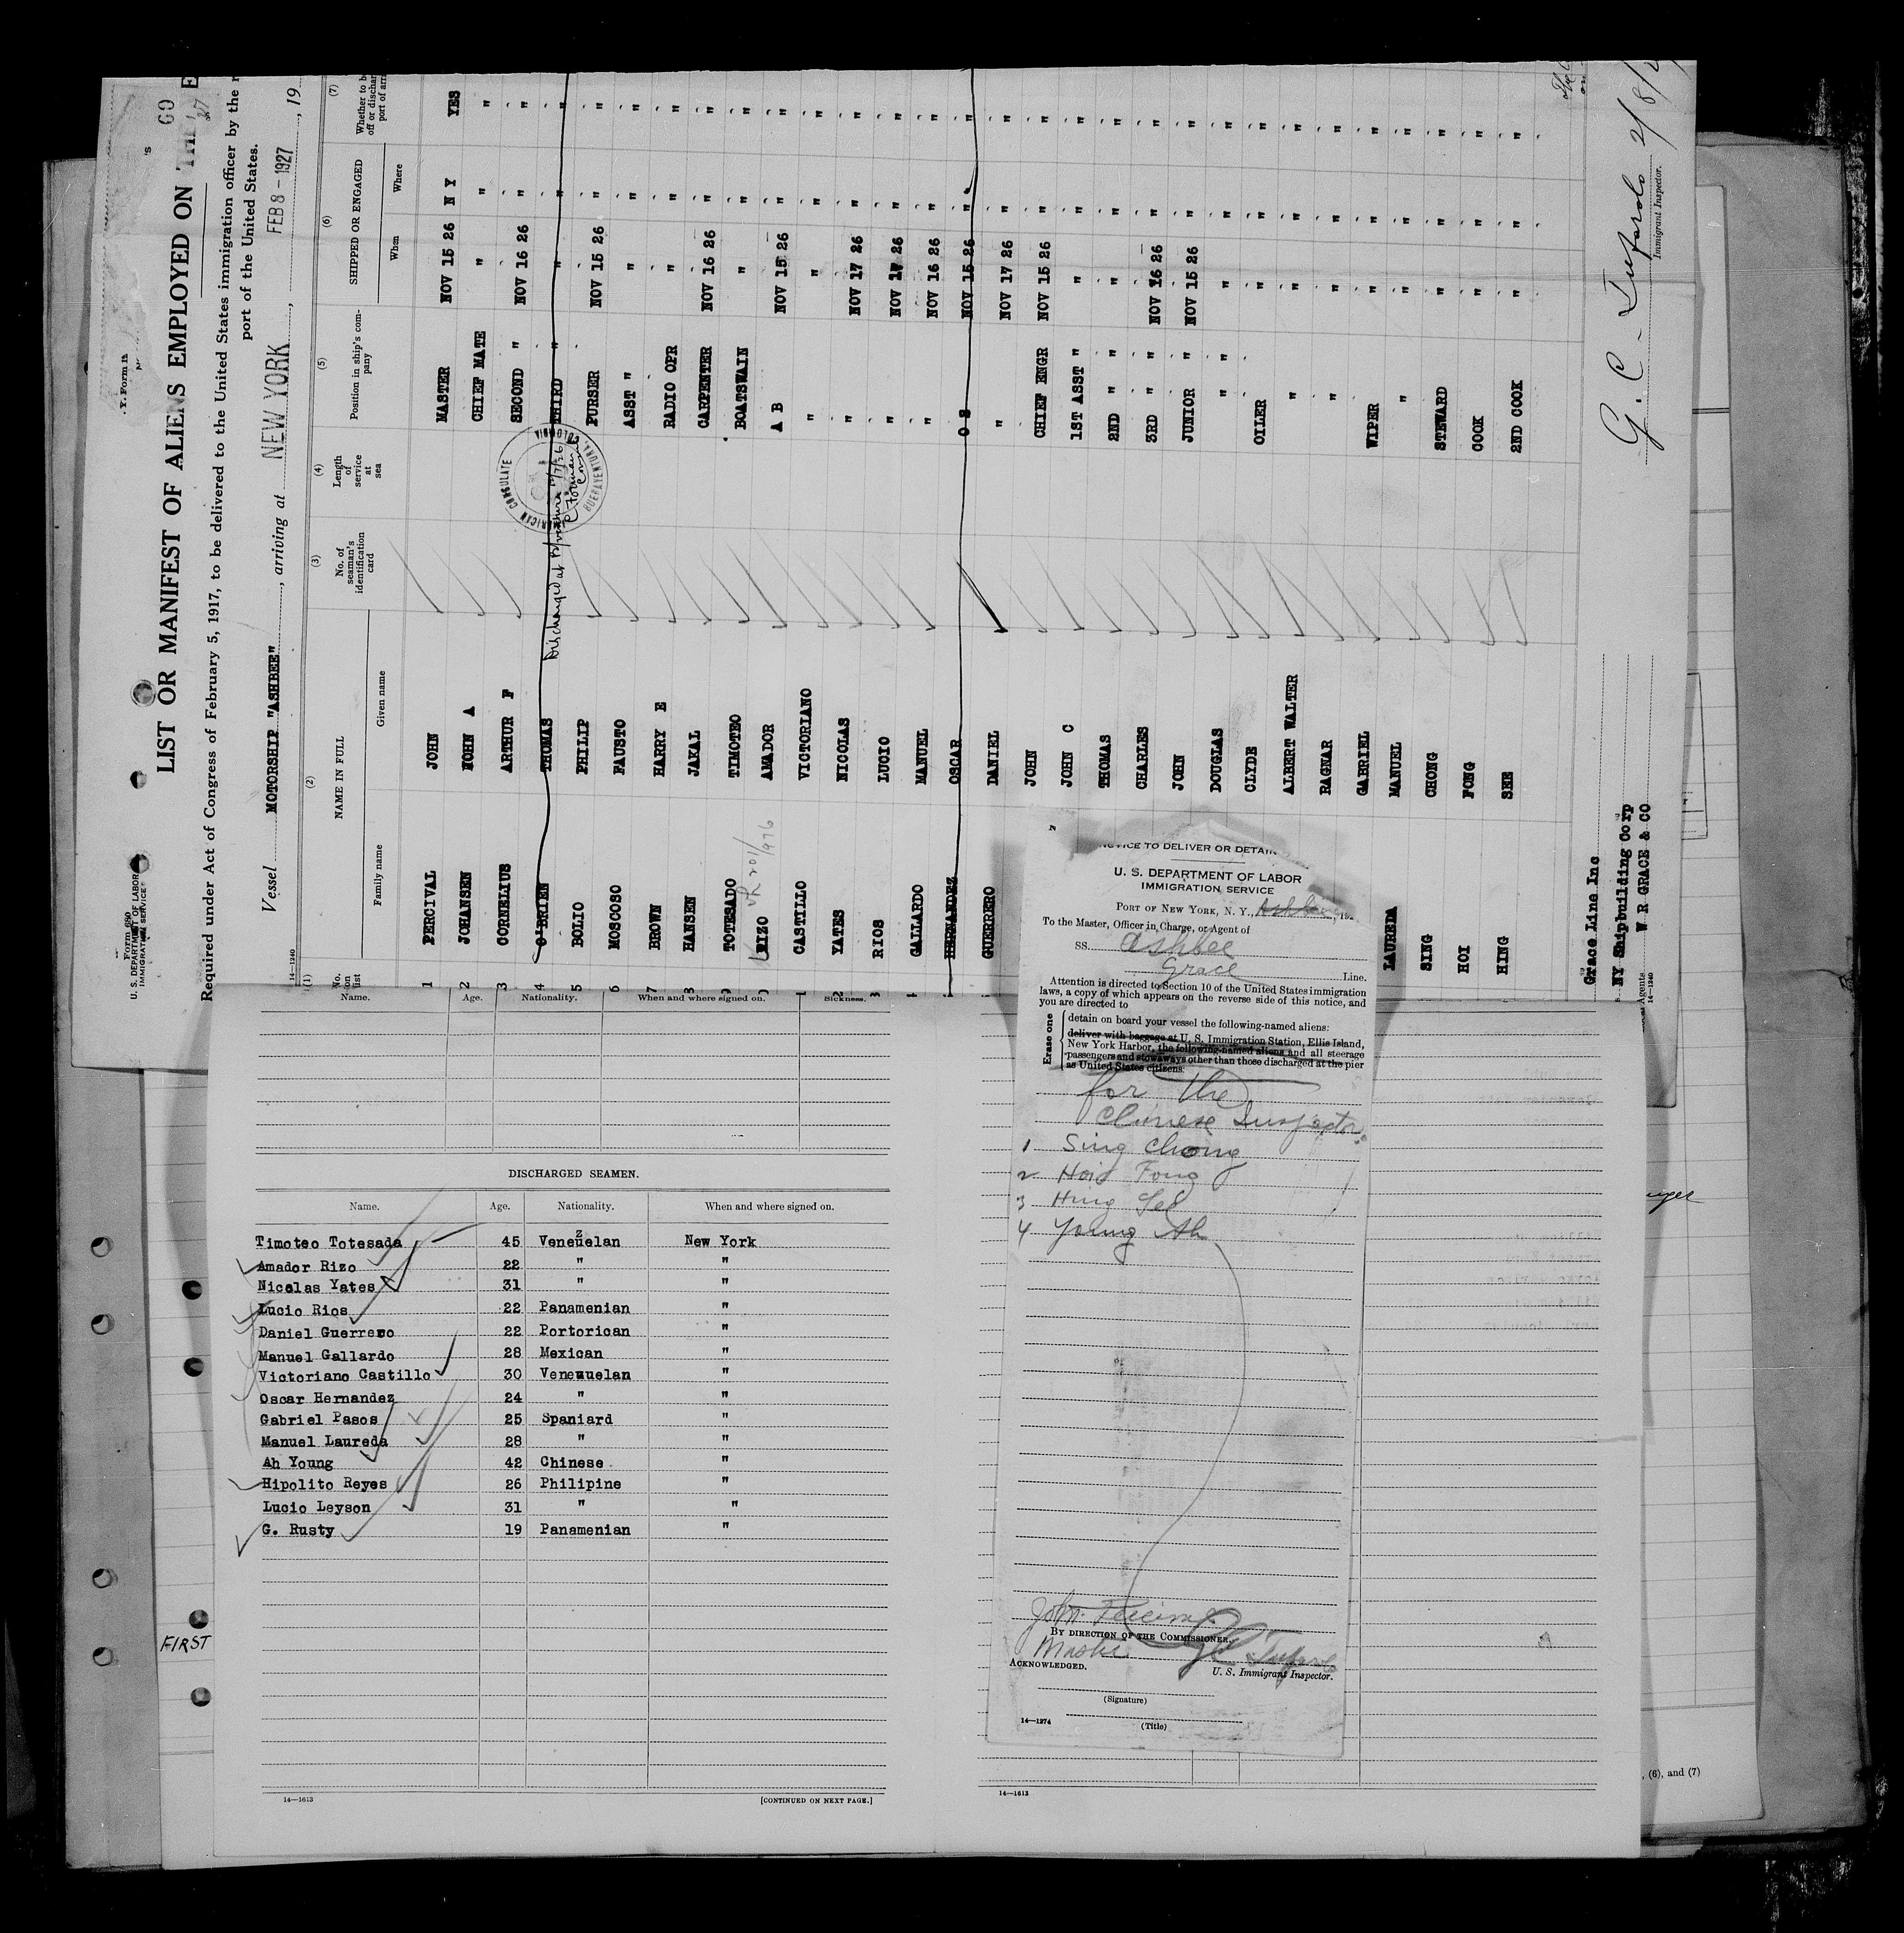 Form 680
U. S. DEPARTMENT OF LABOR
IMMIGRATION SERVICE
LIST OR MANIFEST OF ALIENS EMPLOYED ON THE
Required under Act of Congress of February 5, 1917, to be delivered to the United States immigration officer by the
port of the United States.
Vessel MOTORSHIP "ASHBEE", arriving at NEW YORK, FEB 8 - 1927, 19
14—1240
(1) (2) (3) (4) (5) (6) (7)
No. on list
NAME IN FULL
Family name Given name
No. of seaman's identification card
Length of service at sea
Position in ship's company
SHIPPED OR ENGAGED
When Where
Whether to be
off or dischar
port of arr
1 PERCIVAL JOHN MASTER NOV 15 26 N Y YES
2 JOHANSEN JOHN A CHIEF MATE " " "
3 CORNELIUS ARTHUR F SECOND " NOV 16 26 " "
4 O'BRIEN THOMAS THIRD " " " "
Discharged at B/ventura 12/7/26
AMERICAN CONSULATE
BUENAVENTURA, COLOMBIA
5 BOLIO PHILIP PURSER NOV 15 26 " "
6 MOSCOSO FAUSTO ASST " " " "
7 BROWN HARRY E RADIO OPR " " "
8 HANSEN JAKAL CARPENTER NOV 16 26 " "
9 TOTESADO TIMOTEO BOATSWAIN " " "
0 RIZO AMADOR A B NOV 15 26 " "
1 CASTILLO VICTORIANO " " " "
2 YATES NICOLAS " NOV 17 26 " "
3 RIOS LUCIO " NOV 17 26 " "
4 GALLARDO MANUEL " NOV 16 26 " "
HERNANDEZ OSCAR O S NOV 15 26 " "
GUERRERO DANIEL " NOV 17 26 " "
JOHN CHIEF ENGR NOV 15 26 " "
JOHN C 1ST ASST " " " "
THOMAS 2ND " " " " "
CHARLES 3RD " " NOV 16 26 " "
JOHN JUNIOR " NOV 15 26 " "
DOUGLAS " " " " "
CLYDE OILER " " "
ALBERT WALTER " " " "
RAGNAR " " " "
GABRIEL WIPER " " "
LAUREDA MANUEL " " " "
SING CHONG STEWARD " " "
HOI FONG COOK " " "
HING SEE 2ND COOK " " "
Grace Line Inc
NY Shipbuilding Corp
Agents W R GRACE & CO
14—1240
G. C. Tufarolo 2/8/
Immigrant Inspector.
Name. Age. Nationality. When and where signed on. Sickness.
DISCHARGED SEAMEN.
Name. Age. Nationality. When and where signed on.
Timoteo Totesada 45 Venezuelan New York
Amador Rizo 22 " "
Nicolas Yates 31 " "
Lucio Rios 22 Panamenian "
Daniel Guerrero 22 Portorican "
Manuel Gallardo 28 Mexican "
Victoriano Castillo 30 Venezuelan "
Oscar Hernandez 24 " "
Gabriel Pasos 25 Spaniard "
Manuel Laureda 28 " "
Ah Young 42 Chinese "
Hipolito Reyes 26 Philipine "
Lucio Leyson 31 " "
G. Rusty 19 Panamenian "
14—1613
[CONTINUED ON NEXT PAGE.]
FIRST
NOTICE TO DELIVER OR DETAIN
U. S. DEPARTMENT OF LABOR
IMMIGRATION SERVICE
PORT OF NEW YORK, N. Y.,
To the Master, Officer in Charge, or Agent of
SS. Ashbee
Grace Line.
Attention is directed to Section 10 of the United States immigration
laws, a copy of which appears on the reverse side of this notice, and
you are directed to
Erase one
detain on board your vessel the following-named aliens:
deliver with baggage at U. S. Immigration Station, Ellis Island,
New York Harbor, the following-named aliens and all steerage
passengers and stowaways other than those discharged at the pier
as United States citizens:
for the
Chinese Inspector
1 Sing Chong
2 Hoi Fong
3 Hing See
4 Young Ah
John
BY DIRECTION OF THE COMMISSIONER.
ACKNOWLEDGED.
U. S. Immigrant Inspector.
(Signature)
14—1274
(Title)
14—1613
, (6), and (7)